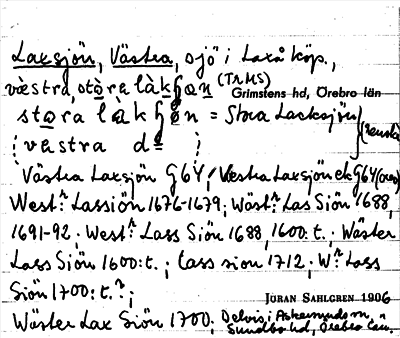 Laxsjön, Västra, sjö i Laxå köp.,
västra, stòra làkʃøn (TRMS)
Grimstens hd, Örebro län
stora làkʃøn = Stora Lacksjön
(västra d=)
Västra Laxsjön G64, Westra Laxsjön ek G64
West:ʳ Lassiön 1676-1679; Wäst:ʳ Las Siön 1688,
1691-92; West:ʳ Lass Siön 1688, 1600:t.; Wäster
Lass Siön 1600:t.; Lass sion 1712; W:ʳ Lass
Siön 1700:t.?;
JÖRAN SAHLGREN 1906
Wäster Lax Siön 1700; Delvis i Askersunds sn,
Sundbo hd, Örebro län.